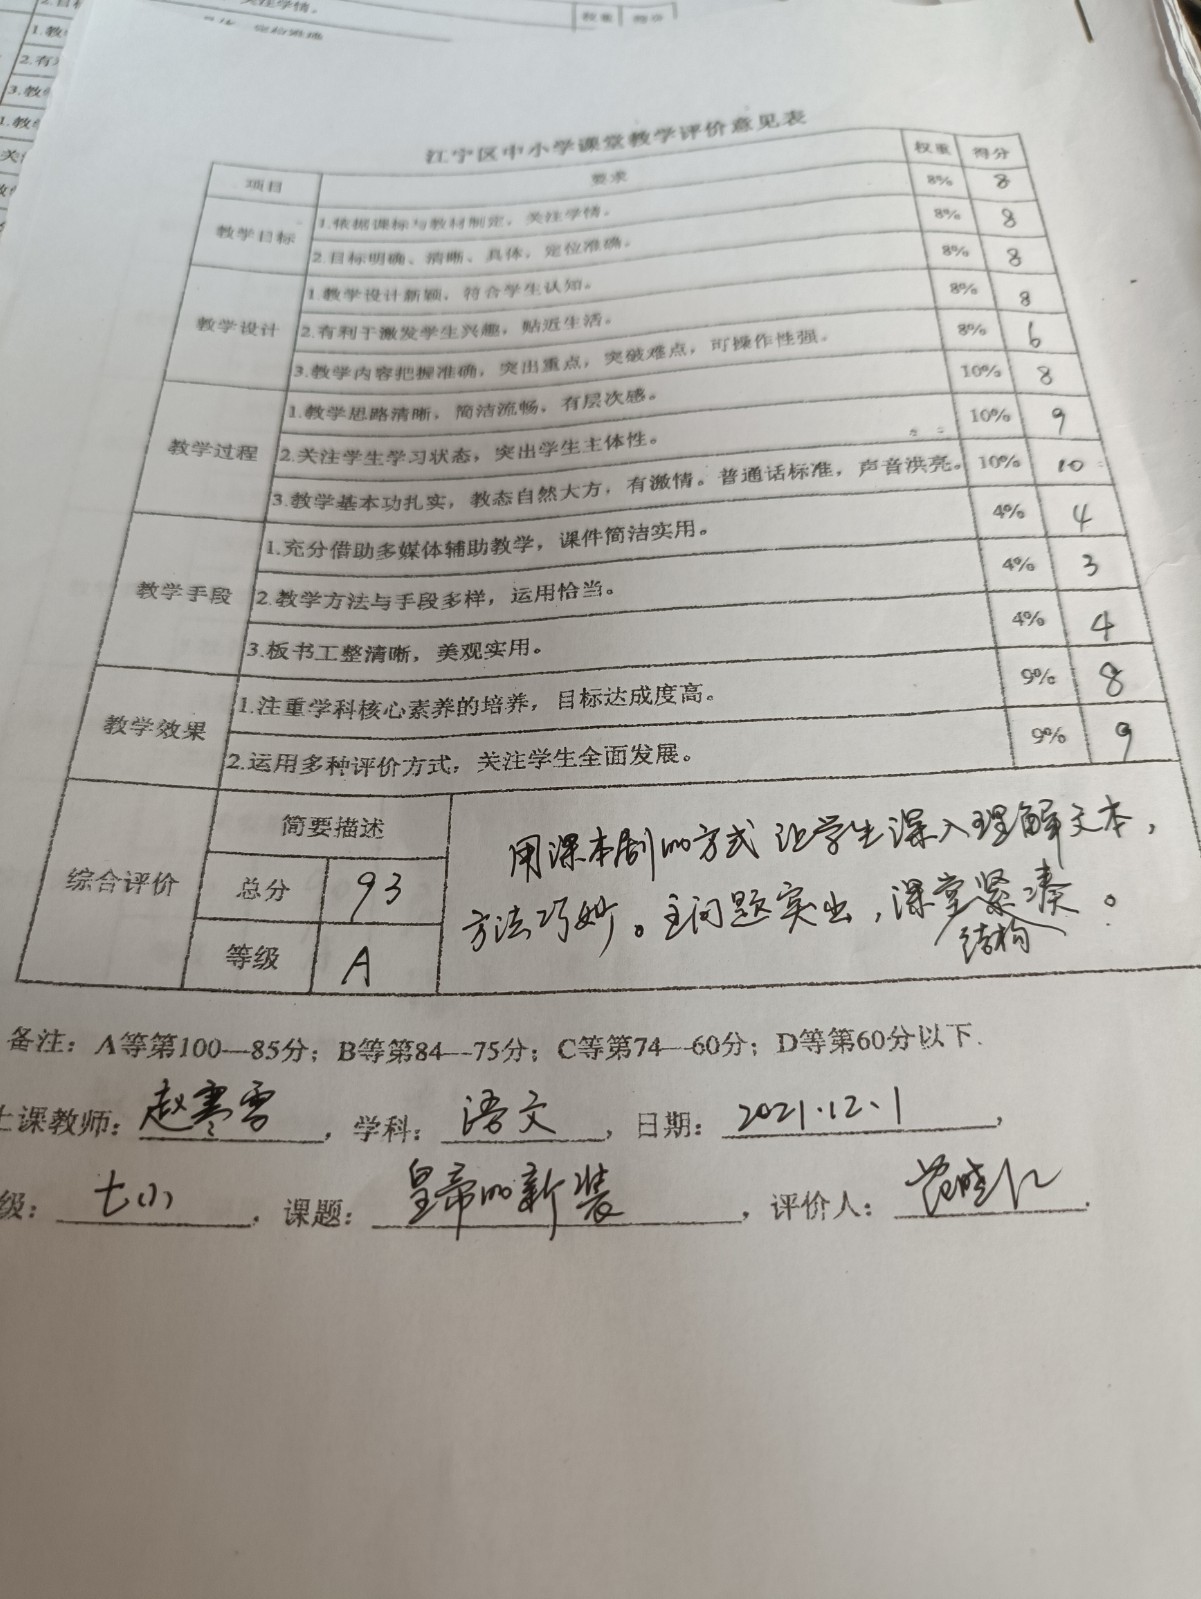 江宁区中小学课堂教学评价意见表
项目 要求 权重 得分
教学目标 1.依据课标与教材制定，关注学情。 8% 8
2.目标明确、清晰、具体，定位准确。 8% 8
教学设计 1.教学设计新颖，符合学生认知。 8% 8
2.有利于激发学生兴趣，贴近生活。 8% 8
3.教学内容把握准确，突出重点，突破难点，可操作性强。 8% 6
教学过程 1.教学思路清晰，简洁流畅，有层次感。 10% 8
2.关注学生学习状态，突出学生主体性。 10% 9
3.教学基本功扎实，教态自然大方，有激情。普通话标准，声音洪亮。 10% 10
教学手段 1.充分借助多媒体辅助教学，课件简洁实用。 4% 4
2.教学方法与手段多样，运用恰当。 4% 3
3.板书工整清晰，美观实用。 4% 4
教学效果 1.注重学科核心素养的培养，目标达成度高。 9% 8
2.运用多种评价方式，关注学生全面发展。 9% 9
综合评价 简要描述
总分 93
等级 A
用课本剧的方式让学生深入理解文本，
方法巧妙。主问题突出，课堂结构紧凑。
备注：A等第100—85分；B等第84—75分；C等第74—60分；D等第60分以下.
上课教师：赵寒雪，学科：语文，日期：2021.12.1，
级：七(1)，课题：皇帝的新装，评价人：